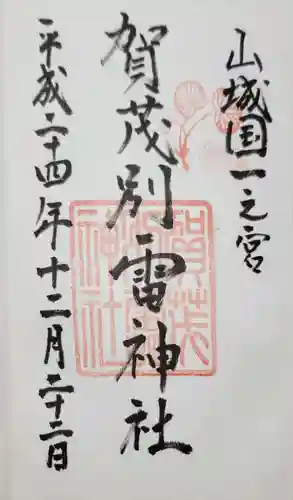 山城国一之宮
賀茂別雷神社
平成二十四年十二月二十二日